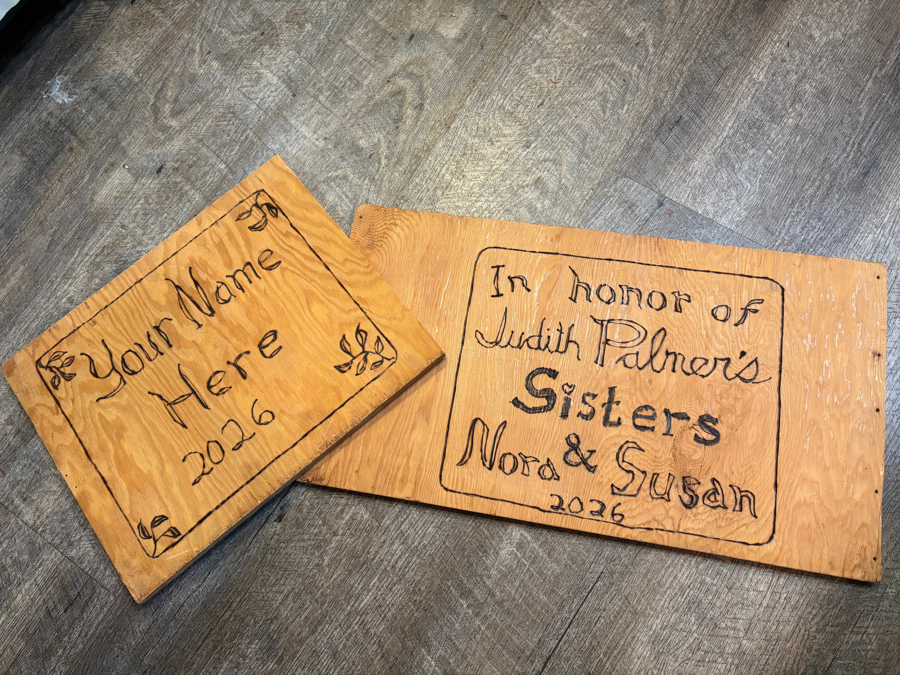 Your Name
Here
2026
In honor of
Judith Palmer's
Sisters
Nora & Susan
2026